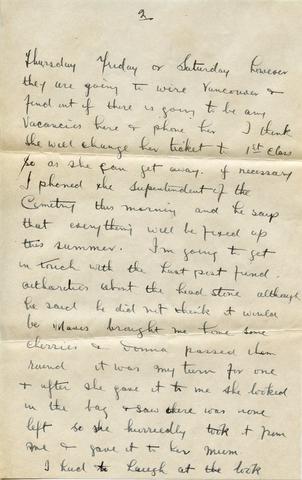 2
Thursday Friday or Saturday however
they are going to wire Vancouver &
find out if there is going to be any
Vacancies here & phone her I think
she will change her ticket to 1st Class
so as she can get away. if necessary
I phoned the Supentindent of the
Cemetry this morning and he says
that everything will be fixed up
this summer. I'm going to get
in touch with the Last post fund.
authorities about the head stone although
he said he did not think it would
be brought me home some
cherries & Donna passed them
round it was my turn for one
& after she gave it to me she looked
in the bag & saw there was none
left so she hurriedly took it from
me & gave it to her mum.
I had to laugh at the look